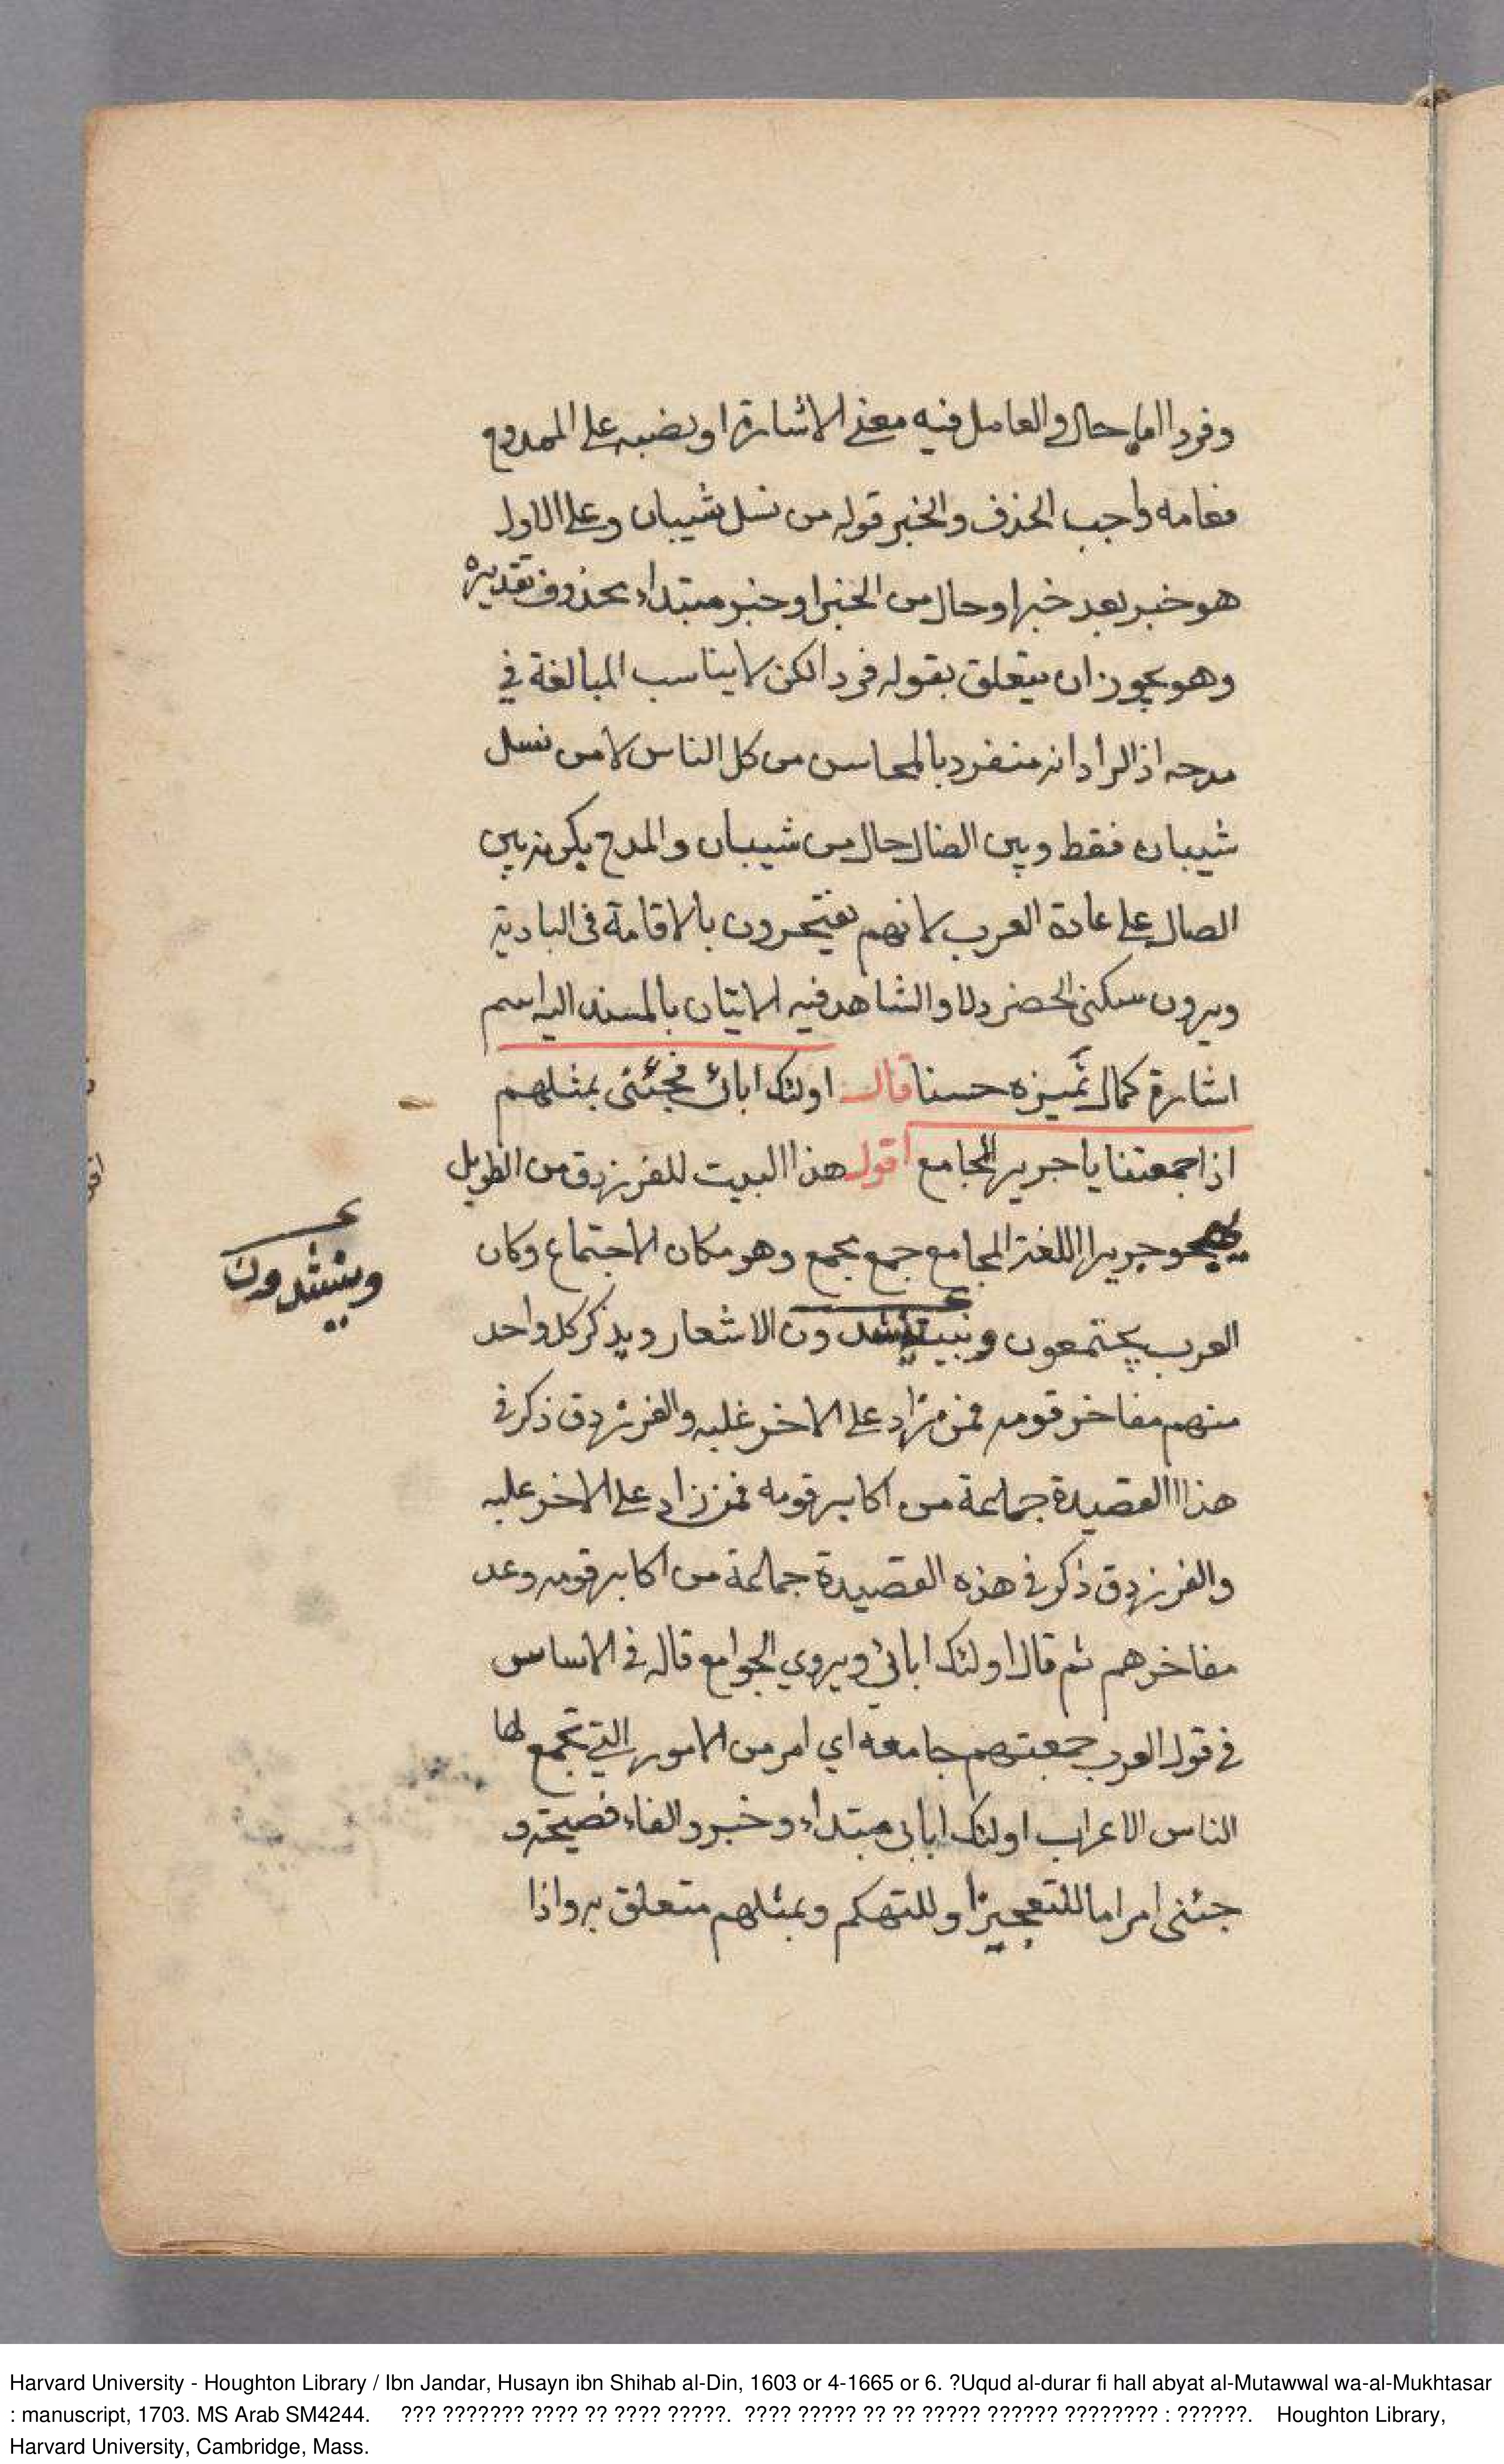 وفردا اما حال والعامل فيه معنى الاشارة او نصبه على المدح
فعامله واجب الحذف والخبر قوله من نسل شيبان وعلى الاول
هو خبر بعد خبر او حال من الخبر او خبر مبتداء محذوف تقديره
وهو يجوز ان يتعلق بقوله فردا لكن لا يناسب المبالغة في
مدحه اذ المراد انه منفرد بالمحاسن من كل الناس لا من نسل
شيبان فقط وبين الضال حال من شيبان والمدح بكونه بين
الضال على عادة العرب لانهم يفتخرون بالاقامة في البادية
ويرون سكنى الحضر ذلا والشاهد فيه الاتيان بالمسند اليه اسم
اشارة كمال تميزه حسنا قال اولئك ابائ فجئنى بمثلهم
اذا جمعتنا يا جرير المجامع اقول هذا البيت للفرزدق من الطويل
يهجو جريرا اللغة المجامع جمع مجمع وهو مكان الاجتماع وكان
العرب يجتمعون وينشدون الاشعار ويذكر كل واحد
وينشدون
منهم مفاخر قومه فمن زاد على الاخر غلبه والفرزدق ذكر في
هذا القصيدة جماعة من اكابر قومه فمن زاد على الاخر غلبه
والفرزدق ذكر في هذه القصيدة جماعة من اكابر قومه وعد
مفاخرهم ثم قال اولئك ابائي ويروي الجوامع قال في الاساس
في قول العرب جمعتهم جامعة اي امر من الامور التي تجمع لها
الناس الاعراب اولئك ابائى مبتداء وخبر والفاء فصيحة و
جئنى امر اما للتعجيز او للتهكم وبمثلهم متعلق به واذا
Harvard University - Houghton Library / Ibn Jandar, Husayn ibn Shihab al-Din, 1603 or 4-1665 or 6. ?Uqud al-durar fi hall abyat al-Mutawwal wa-al-Mukhtasar
: manuscript, 1703. MS Arab SM4244. ??? ??????? ???? ?? ???? ?????. ???? ????? ?? ?? ????? ?????? ???????? : ??????. Houghton Library,
Harvard University, Cambridge, Mass.